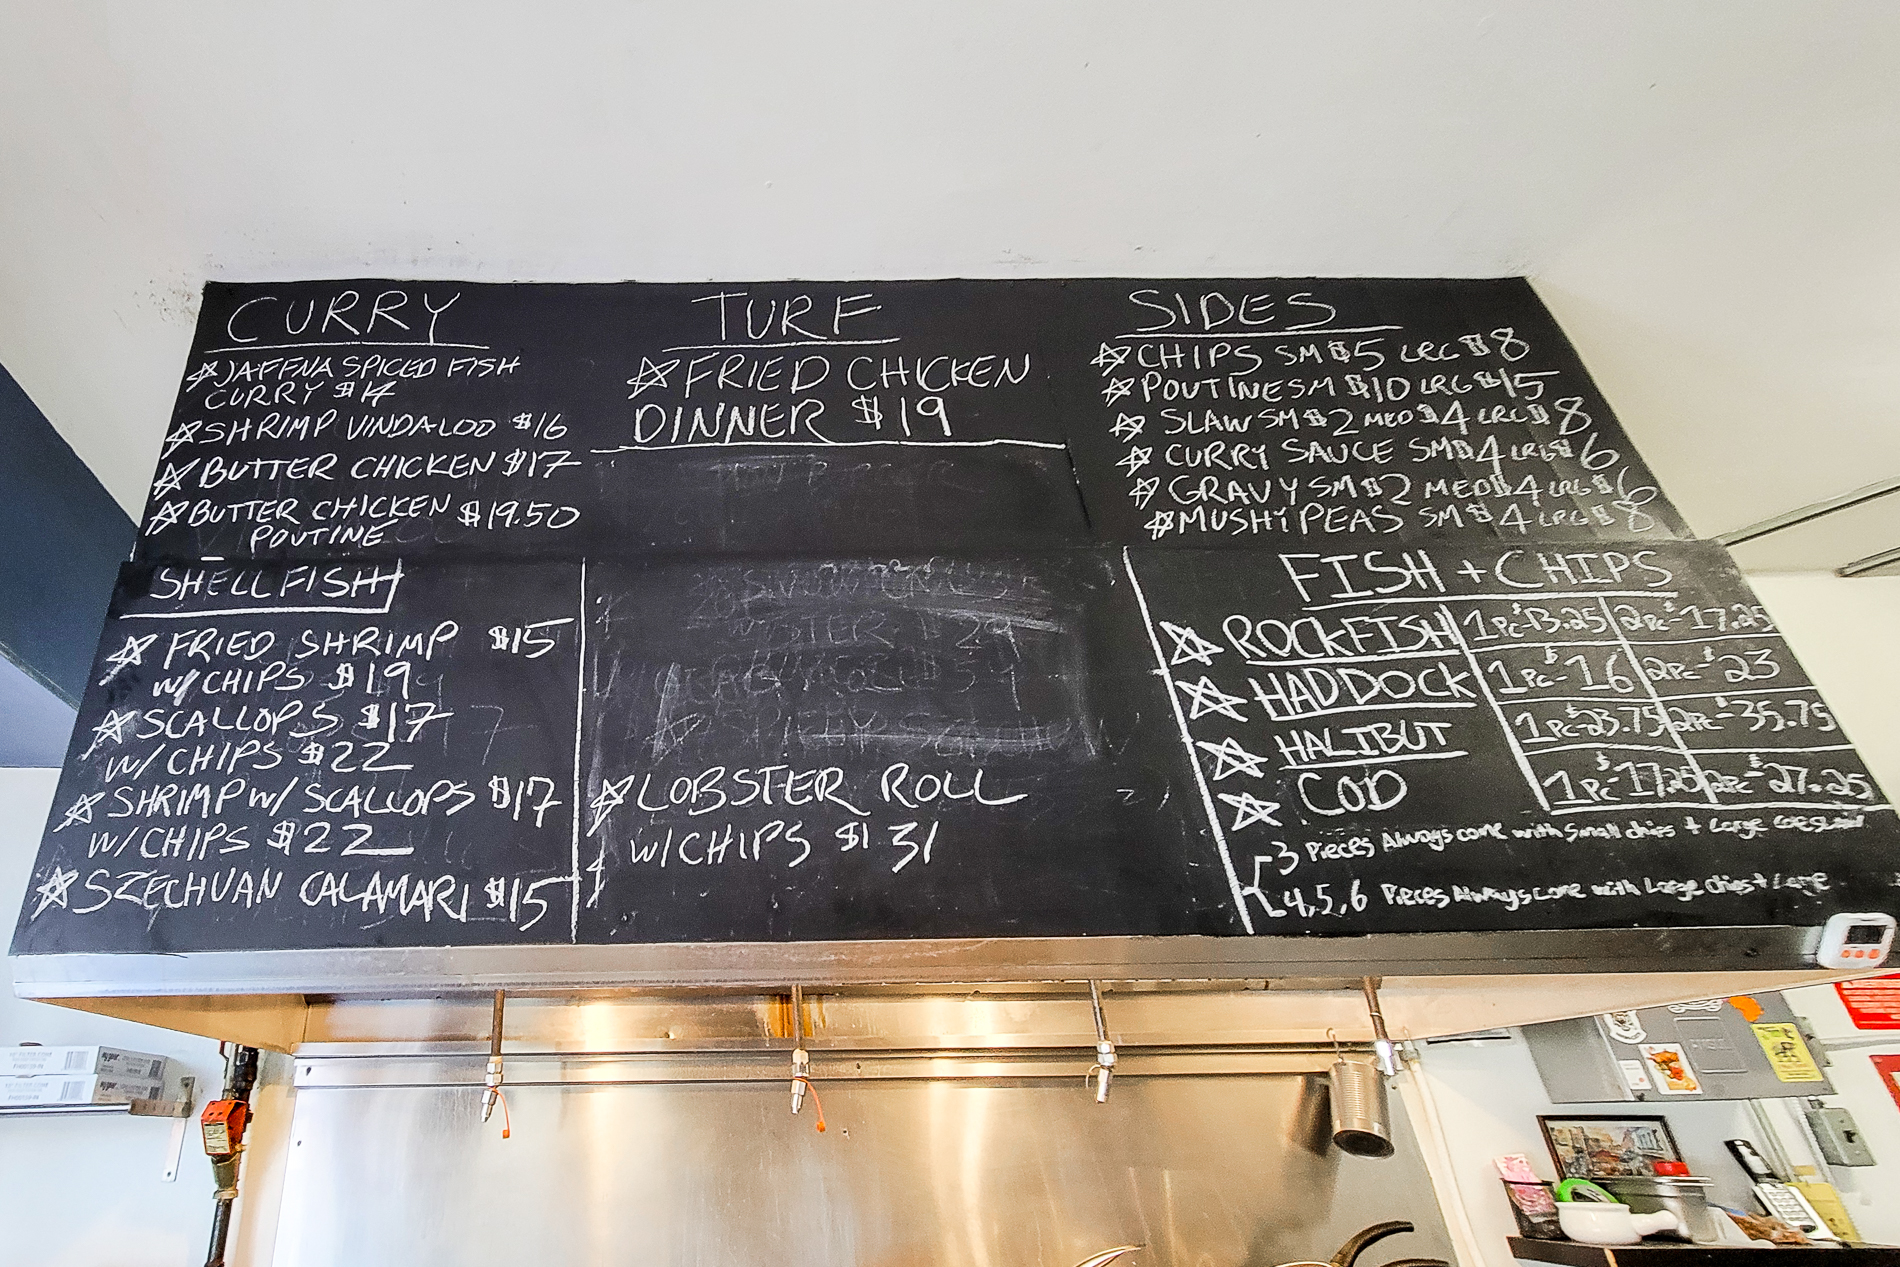 CURRY
JAFFNA SPICED FISH
CURRY $14
SHRIMP VINDALOO $16
BUTTER CHICKEN $17
BUTTER CHICKEN $19.50
POUTINE
TURF
FRIED CHICKEN
DINNER $19
SIDES
CHIPS SM $5 LRG $8
POUTINE SM $10 LRG $15
SLAW SM $2 MED $4 LRG $8
CURRY SAUCE SM $4 LRG $6
GRAVY SM $2 MED $4 LRG $6
MUSHY PEAS SM $4 LRG $8
SHELLFISH
FRIED SHRIMP $15
W/ CHIPS $19
SCALLOPS $17
W/ CHIPS $22
SHRIMP W/ SCALLOPS $17
W/ CHIPS $22
SZECHUAN CALAMARI $15
LOBSTER ROLL
W/ CHIPS $31
FISH + CHIPS
ROCKFISH 1Pc-$13.25 2Pc-$17.25
HADDOCK 1Pc-$16 2Pc-$23
HALIBUT 1Pc-$23.75 2Pc-$35.75
COD 1Pc-$17.25 2Pc-$27.25
3 Pieces Always come with Small chips + Large
4,5,6 Pieces Always come with Large chips +